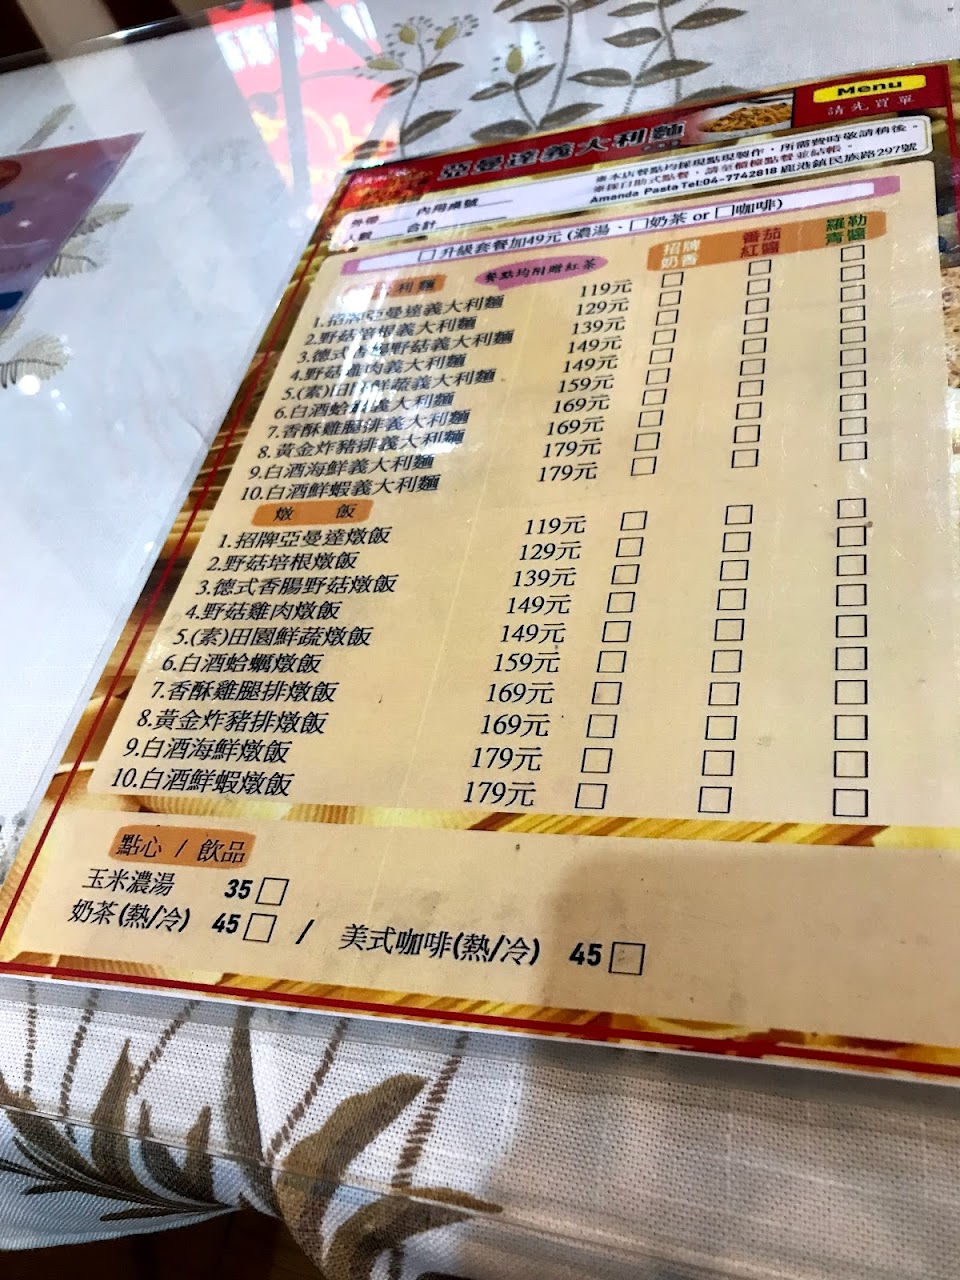 Menu
請先買單
亞曼達義大利麵
※本店餐點均採現點現製作，所需費時敬請稍後。
※採自助式點餐，請至櫃檯點餐並結帳。
Amanda Pasta Tel:04-7742818 鹿港鎮民族路297號
外帶 內用桌號
人數 合計
□升級套餐加49元(濃湯、□奶茶 or □咖啡)
利麵 餐點均附贈紅茶 招牌奶香 番茄紅醬 羅勒青醬
1.招牌亞曼達義大利麵 119元 □ □ □
2.野菇培根義大利麵 129元 □ □ □
3.德式香腸野菇義大利麵 139元 □ □ □
4.野菇雞肉義大利麵 149元 □ □ □
5.(素)田園鮮蔬義大利麵 149元 □ □ □
6.白酒蛤蠣義大利麵 159元 □ □ □
7.香酥雞腿排義大利麵 169元 □ □ □
8.黃金炸豬排義大利麵 169元 □ □ □
9.白酒海鮮義大利麵 179元 □ □ □
10.白酒鮮蝦義大利麵 179元 □ □ □
燉 飯
1.招牌亞曼達燉飯 119元 □ □ □
2.野菇培根燉飯 129元 □ □ □
3.德式香腸野菇燉飯 139元 □ □ □
4.野菇雞肉燉飯 149元 □ □ □
5.(素)田園鮮蔬燉飯 149元 □ □ □
6.白酒蛤蠣燉飯 159元 □ □ □
7.香酥雞腿排燉飯 169元 □ □ □
8.黃金炸豬排燉飯 169元 □ □ □
9.白酒海鮮燉飯 179元 □ □ □
10.白酒鮮蝦燉飯 179元 □ □ □
點心 / 飲品
玉米濃湯 35 □
奶茶(熱/冷) 45 □ / 美式咖啡(熱/冷) 45 □